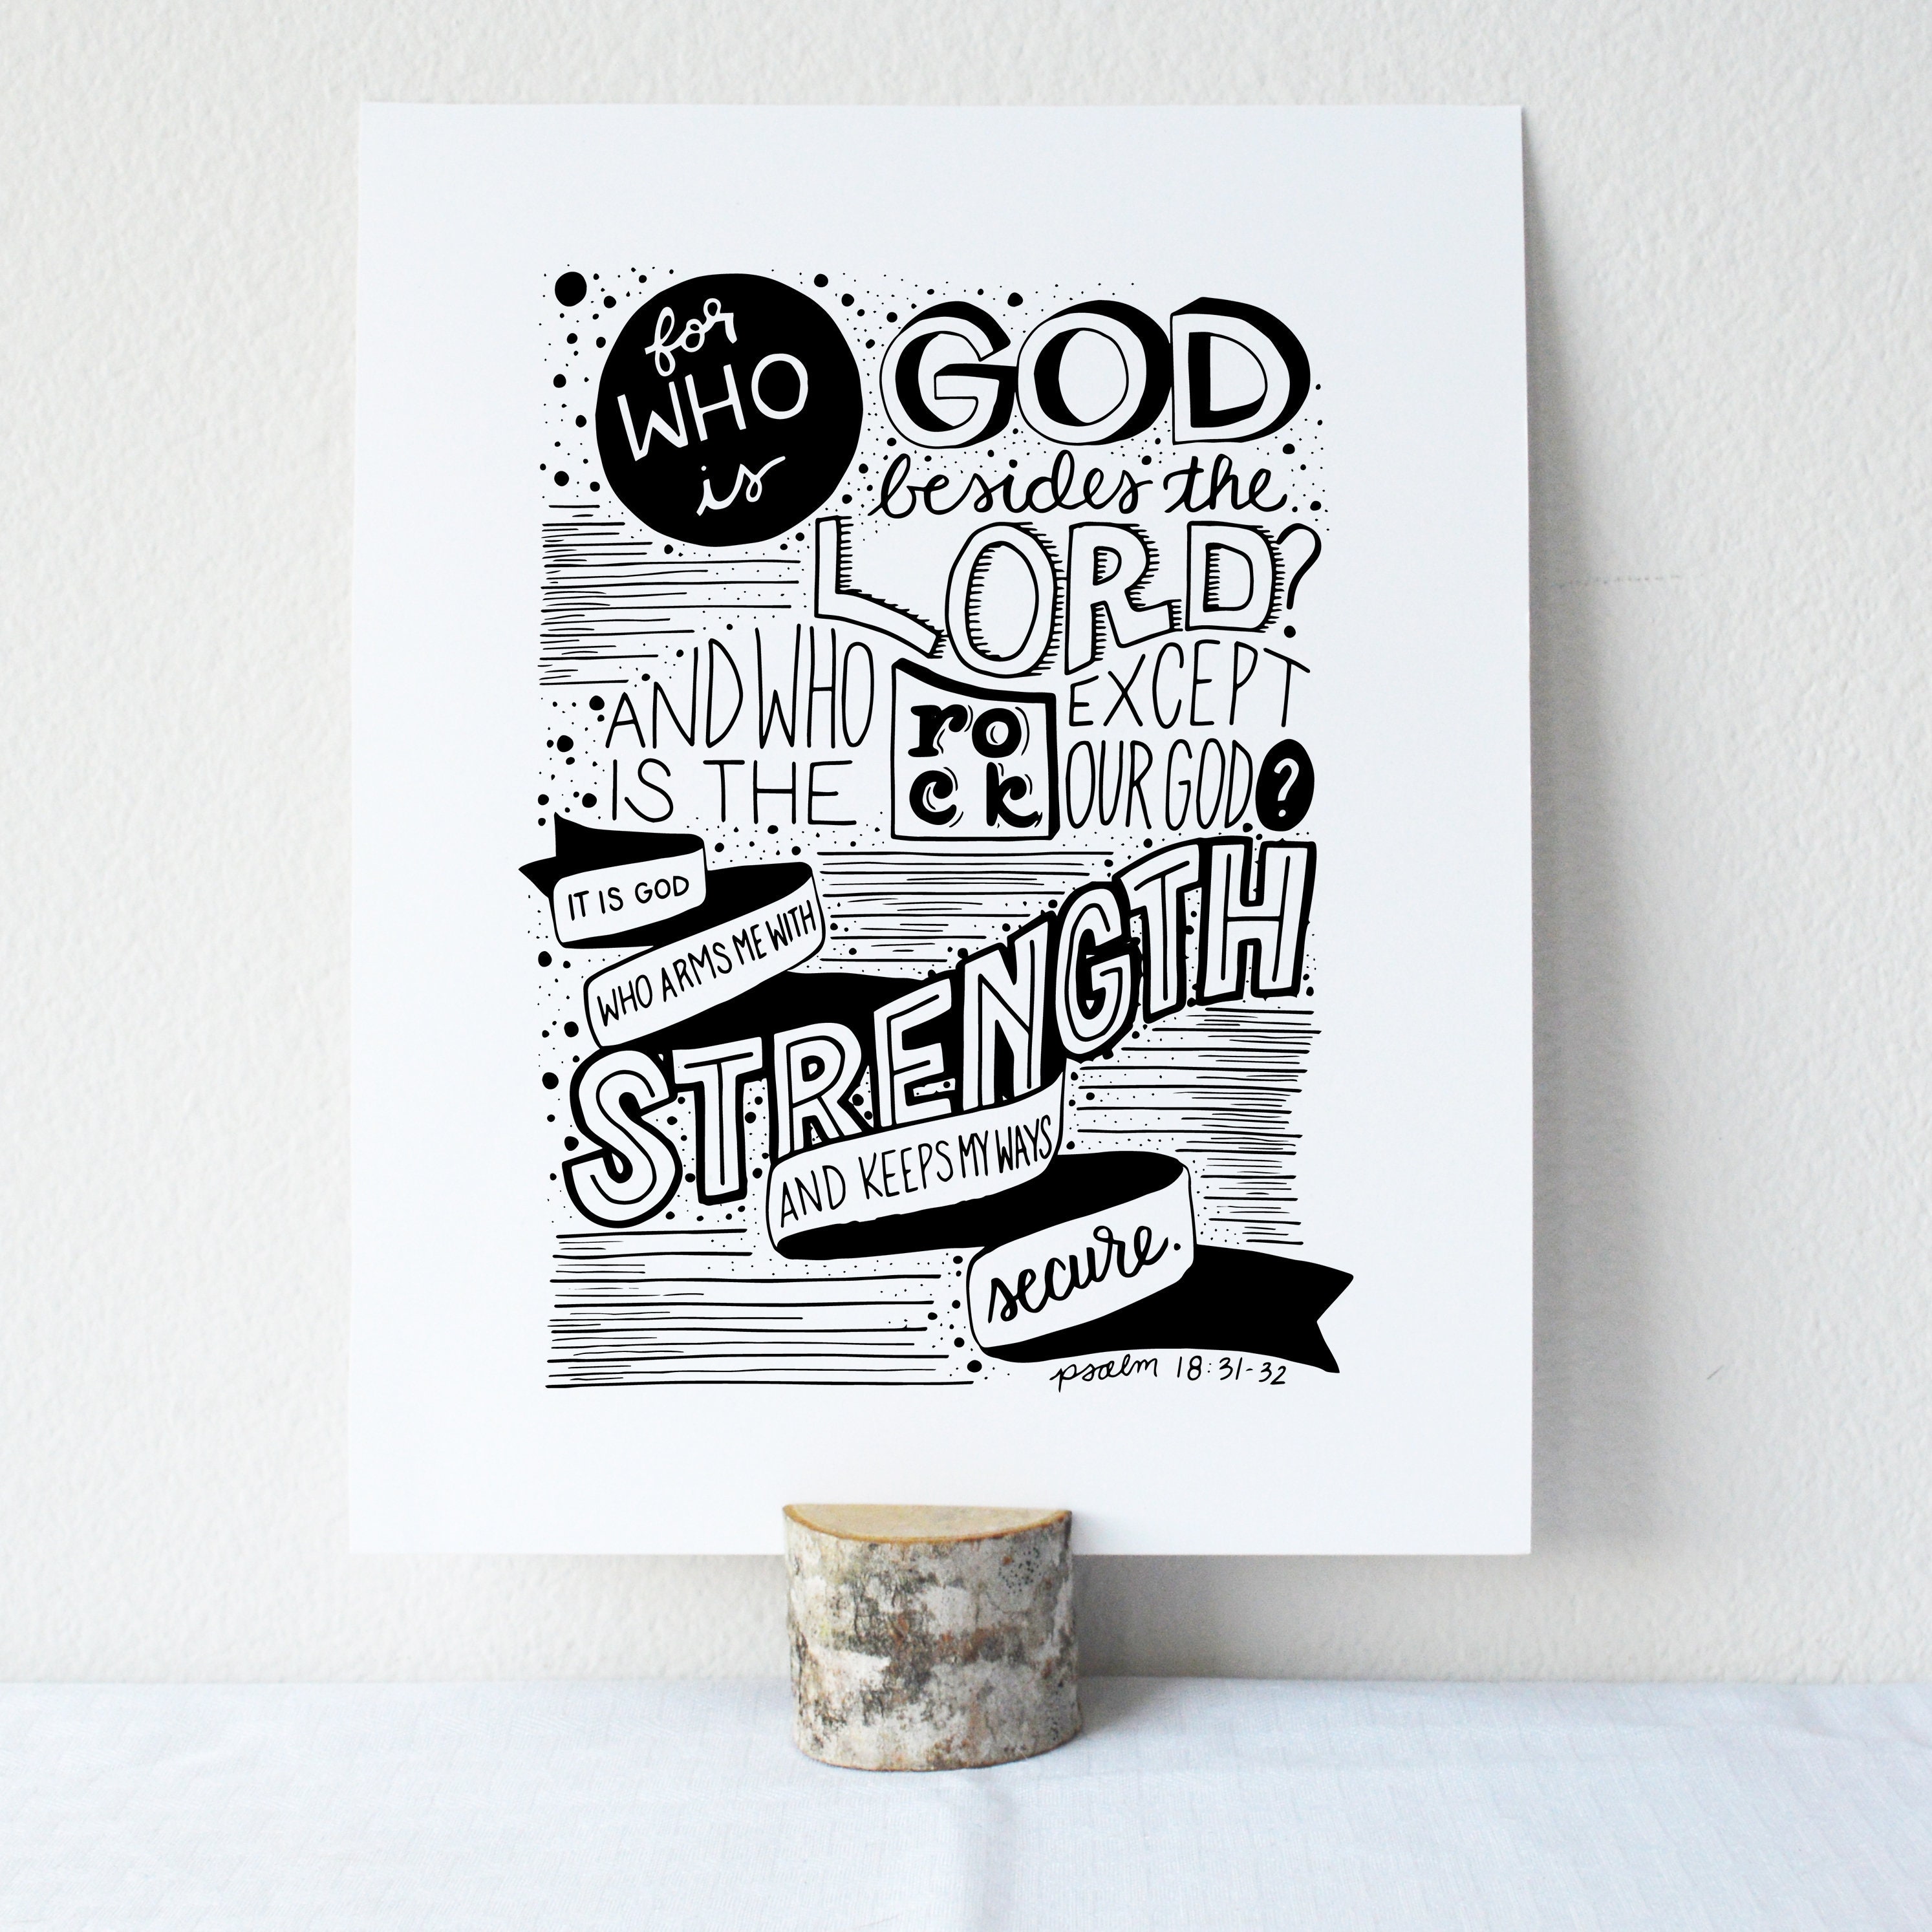 for
WHO
is
GOD
besides the
LORD?
AND WHO
IS THE
ro
ck
EXCEPT
OUR GOD?
IT IS GOD
WHO ARMS ME WITH
STRENGTH
AND KEEPS MY WAYS
secure.
psalm 18:31-32